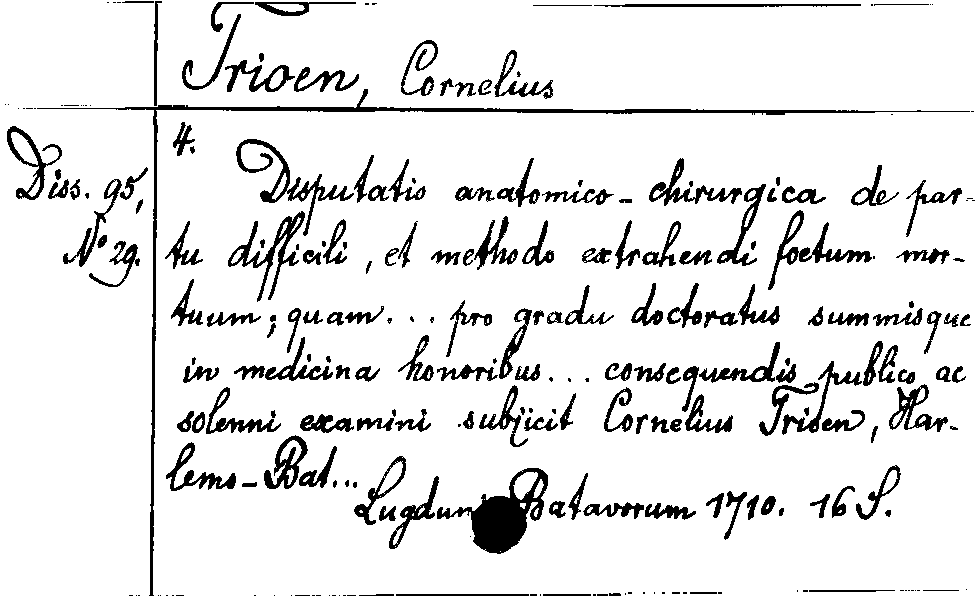 Trioen, Cornelius
4.
Diss. 95,
Disputatio anatomico-chirurgica de par-
No 29.
tu difficili, et methodo extrahendi foetum mor-
tuum; quam... pro gradu doctoratus summisque
in medicina honoribus... consequendis publico ac
solenni examini subjicit Cornelius Trioen, Har-
lemo-Bat...
Lugduni Batavorum 1710. 16 S.